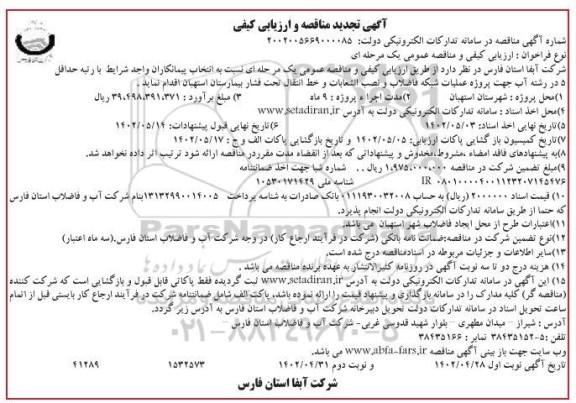 آگهی تجدید مناقصه و ارزیابی کیفی
شماره آگهی مناقصه در سامانه تدارکات الکترونیکی دولت: ۲۰۰۲۰۰۵۶۶۹۰۰۰۰۸۵
نوع فراخوان : ارزیابی کیفی و مناقصه عمومی یک مرحله ای
شرکت آبفا استان فارس در نظر دارد از طریق ارزیابی کیفی و مناقصه عمومی یک مرحله ای نسبت به انتخاب پیمانکاران واجد شرایط با رتبه حداقل
۵ در رشته آب جهت پروژه عملیات شبکه فاضلاب و نصب انشعابات و خط انتقال تحت فشار بیمارستان استهبان اقدام نماید .
۱)محل پروژه : شهرستان استهبان ۲)مدت اجرا ء پروژه : ۹ ماه ۳) مبلغ برآورد : ۳۹,۴۹۸,۳۹۱,۳۷۱ ریال
۴)محل اخذ اسناد : سامانه تدارکات الکترونیکی دولت به آدرس www.setadiran.ir
۵)تاریخ نهایی اخذ اسناد: ۱۴۰۲/۰۵/۰۳ ۶)تاریخ نهایی قبول پیشنهادات: ۱۴۰۲/۰۵/۱۴
۷)تاریخ کمیسیون باز گشایی پاکات ارزیابی: ۱۴۰۲/۰۵/۰۵ و تاریخ بازگشایی پاکات الف و ج : ۱۴۰۲/۰۵/۱۷
۸)به پیشنهادهای فاقد امضاء ،مشروط،مخدوش و پیشنهاداتی که بعد از انقضاء مدت مقرردر مناقصه ارائه شود ترتیب اثر داده نخواهد شد.
۹)مبلغ تضمین شرکت در مناقصه ۱,۹۷۵,۰۰۰,۰۰۰ ریال . شماره شبا جهت اخذ ضمانتنامه
IR ۰۸۰۱۰۰۰۰۴۰۰۱۱۲۳۲۰۷۱۴۵۴۷۶ شناسه ملی ۱۰۵۳۰۱۷۴۴۲۹
۱۰) قیمت اسناد ۲۰۰۰۰۰۰ (ریال) به حساب ۰۱۱۱۹۳۰۰۳۲۰۰۸ بانک صادرات به شناسه پرداخت ۱۳۱۳۲۹۹۰۰۱۴۰۰۵بنام شرکت آب و فاضلاب استان فارس
که حتما از طریق سامانه تدارکات الکترونیکی دولت انجام پذیرد.
۱۱)اعتبارات طرح از محل ایجاد فاضلاب شهر استهبان می باشد.
۱۲)نوع تضمین شرکت در مناقصه:ضمانت نامه بانکی (شرکت در فرآیند ارجاع کار) در وجه شرکت آب و فاضلاب استان فارس.(سه ماه اعتبار)
۱۳)سایر اطلاعات و جزئیات مربوطه در اسنادمناقصه درج شده است.
۱۴) هزینه درج دو تا سه نوبت آگهی در روزنامه کثیرالانتشار به عهده برنده مناقصه می باشد .
۱۵) این آگهی در سامانه تدارکات الکترونیکی دولت به آدرس www.setadiran.ir ثبت گردیده فقط پاکاتی قابل قبول و بازگشایی است که شرکت کننده
(مناقصه گر) کلیه مدارک را در سامانه بارگذاری و پیشنهاد قیمت را ارائه نموده باشد. پاکت الف شامل ضمانتنامه شرکت در فرآیند ارجاع کار بایستی قبل از اتمام
ساعت تحویل اسناد در سامانه تدارکات دولت تحویل دبیرخانه شرکت آب و فاضلاب استان فارس به آدرس زیر گردد.
آدرس : شیراز – میدان مطهری – بلوار شهید قدوسی غربی- شرکت آب و فاضلاب استان فارس –
تلفن :۵-۳۸۴۳۵۱۵۲ نمابر : ۳۸۴۳۵۱۶۶
وب سایت جهت باز بینی آگهی مناقصه www.abfa-fars.ir می باشد.
تاریخ آگهی نوبت اول ۱۴۰۲/۰۴/۲۸ و نوبت دوم ۱۴۰۲/۰۴/۳۱ ۱۵۳۲۵۷۳ ۴۱۲۸۹
شرکت آبفا استان فارس
ParsNamadData
۰۲۱-۸۸۳۴۹۶۷۰-۵